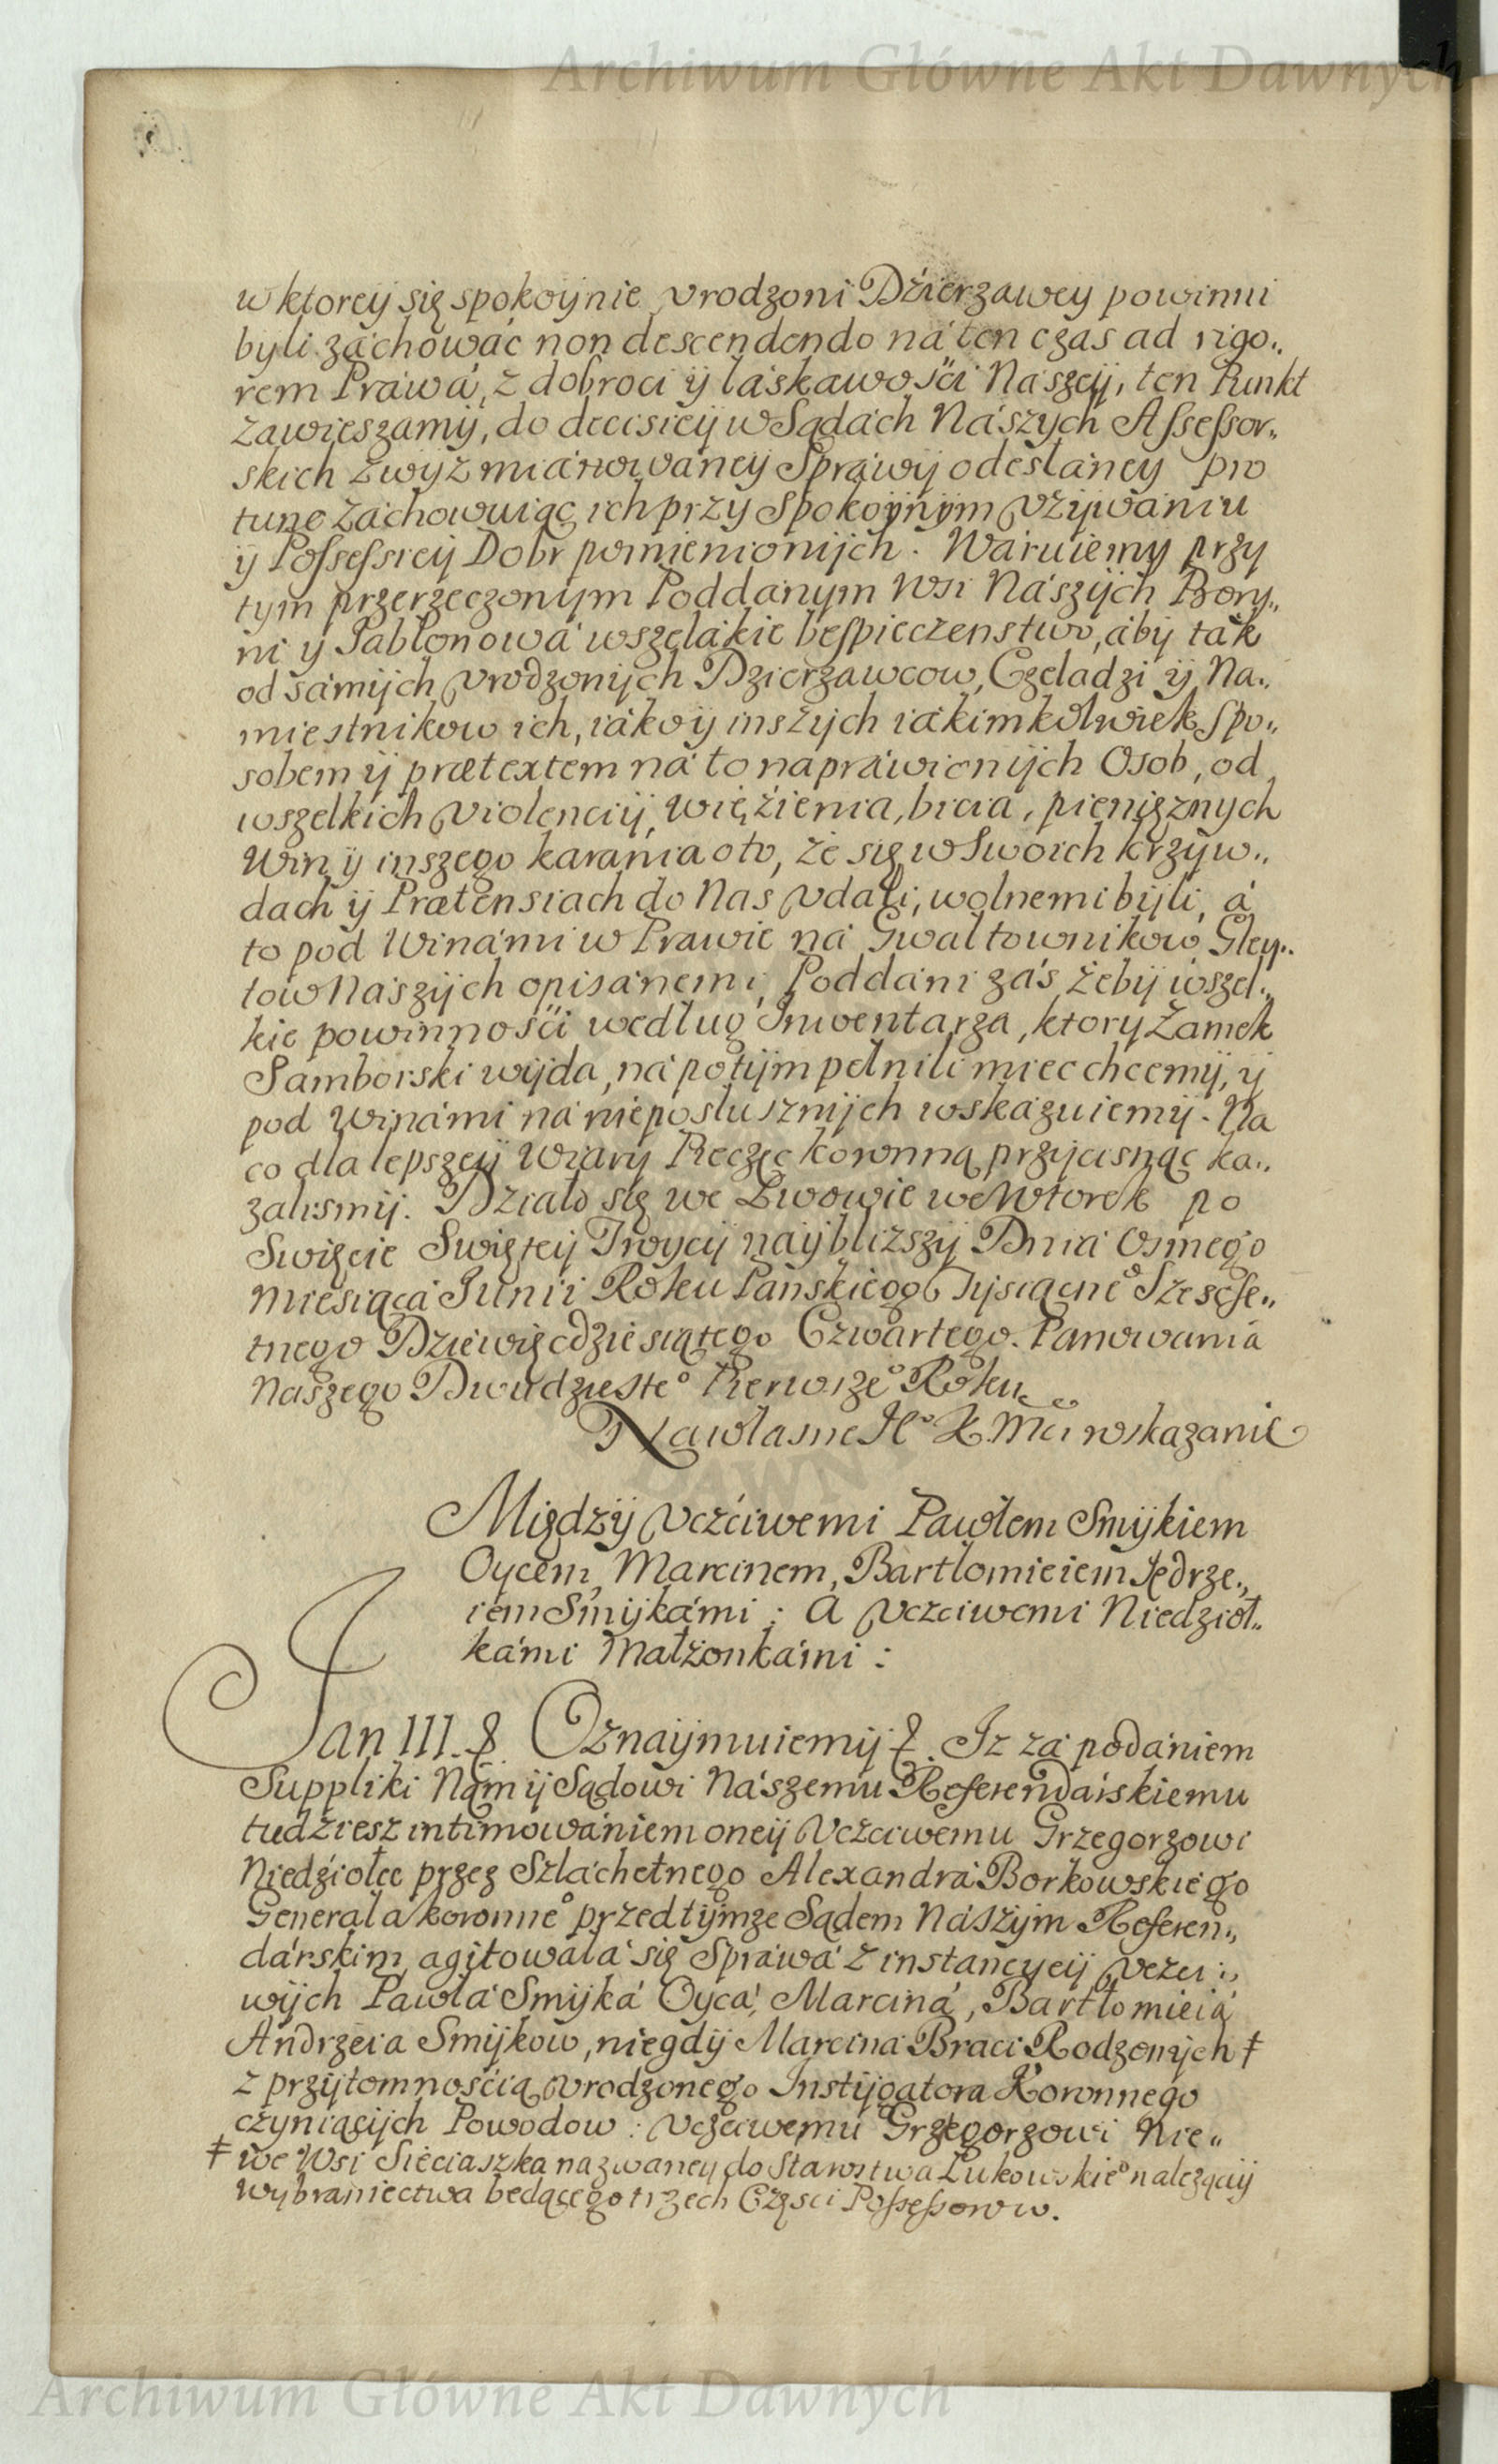 Archiwum Główne Akt Dawnych
w ktoreÿ się spokoÿnie vrodzoni Dźierzawcy powinni
byli záchowáć non descendendo ná ten czas ad rigo„
rem Práwá, z dobroci ÿ láskáwośći Nászeÿ, ten Punkt
záwieszámÿ, do decisieÿ w Sądách Nászych Aſseſsor„
skich zwÿż miánowáneÿ Spráwÿ odesłáney pro
tunc záchowuiąc ich przy Spokoÿnÿm vżÿwániu
ÿ Poſseſsieÿ Dobr pomienionÿch. Wáruiemy przy
tym przerzeczonÿm Poddánym Wsi Nászÿch Bory„
ni y Jabłonowá wszelákie beſpieczenstwo, ábÿ ták
od sámÿch vrodzonÿch Dzierzawcow, Czeladzi ÿ Na„
miestnikow ich, iáko ÿ inszÿch iákimkolwiek Spo„
sobem ÿ prætextem ná to nápráwionÿch Osob, od
wszelkich violenciÿ, więźienia, bicia, pieniężnych
Win ÿ inszego karánia o to, że się w Swoich krzÿw„
dach ÿ Prætensiach do Nas vdáli, wolnemi bÿli, á
to pod Winámi w Práwie ná Gwałtownikow Gley„
tow Nászÿch opisánemi, Poddáni zás żebÿ wszel„
kie powinnośći według Inwentarza, ktory Zamek
Samborski wÿda, ná potÿm pełnili miec chcemÿ, ÿ
pod Winámi ná nieposłusznÿch wskázuiemÿ. Ná
co dla lepszeÿ Wiarÿ Pieczęc koronną przÿcisnąc ka„
zalismÿ. Działo się we Lwowie we Wtorek po
Swięcie Swięteÿ Troÿcÿ naÿbliższÿ Dnia Osmego
Miesiącá Junii Roku Panskiego Tÿsiącne° Szescse„
tnego Dziewięcdziesiątego Czwartego. Panowania
Naszego Dwudzieste° Pierwsze° Roku
Na własne Je° K. Mci wskazanie
Międzÿ vczćiwemi Pawłem Smÿkiem
Oycem, Marcinem, Bartłomieiem Jędrze„
iem Smÿkámi: A vczciwemi Niedzioł„
kámi Małżonkámi:
Jan III. &. Oznaÿmuiemÿ &. Iz zá podániem
Suppliki Nam ÿ Sądowi Nászemu Referendárskiemu
tudziesz intimowániem oneÿ vczciwemu Grzegorzowi
Niedziołce przez Szláchetnego Alexandrá Borkowskiego
Generałá koronne° przed tÿmze Sądem Nászÿm Referen„
dárskim agitowałá się Spráwá z instancyeÿ vczci„
wÿch Pawłá Smÿká Oÿcá, Marciná, Bartłomieiá
Andrzeia Smÿkow, niegdÿ Marcina Braci Rodzonÿch ‡
z przÿtomnośćią vrodzonego Instÿgatora Koronnego
czÿniącÿch Powodow: vczciwemu Grzegorzowi Nie„
‡ we Wsi Sieciaszka nazwaney do Starostwa Łukowskie° należącÿ
wÿbraniectwa będącego trzech Częsci Poſseſsorow.
Archiwum Główne Akt Dawnych